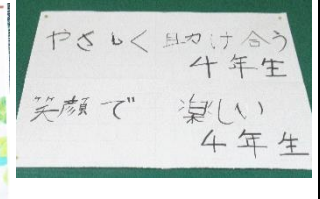 やさしく 助け合う
4年生
笑顔で 楽しい
4年生